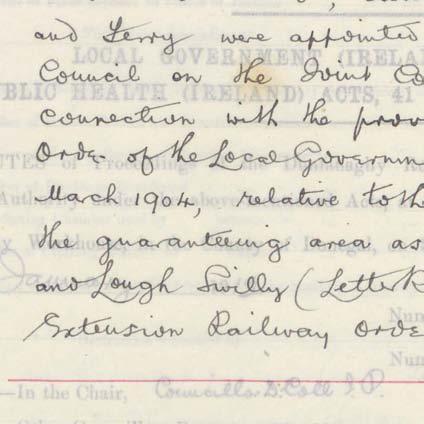 and Ferry were appointed
LOCAL GOVERNMENT (IRELA
Council on the Joint Co
BLIC HEALTH (IRELAND) ACTS, 41
connection with the prov
Order of the Local Governm
TES of Proceedings
March 1904, relative to th
Authority
the guaranteeing area as
and Lough Swilly (Letterk
Extension Railway Orde
Num
Num
—In the Chair, Councillor D. Coll J.P.